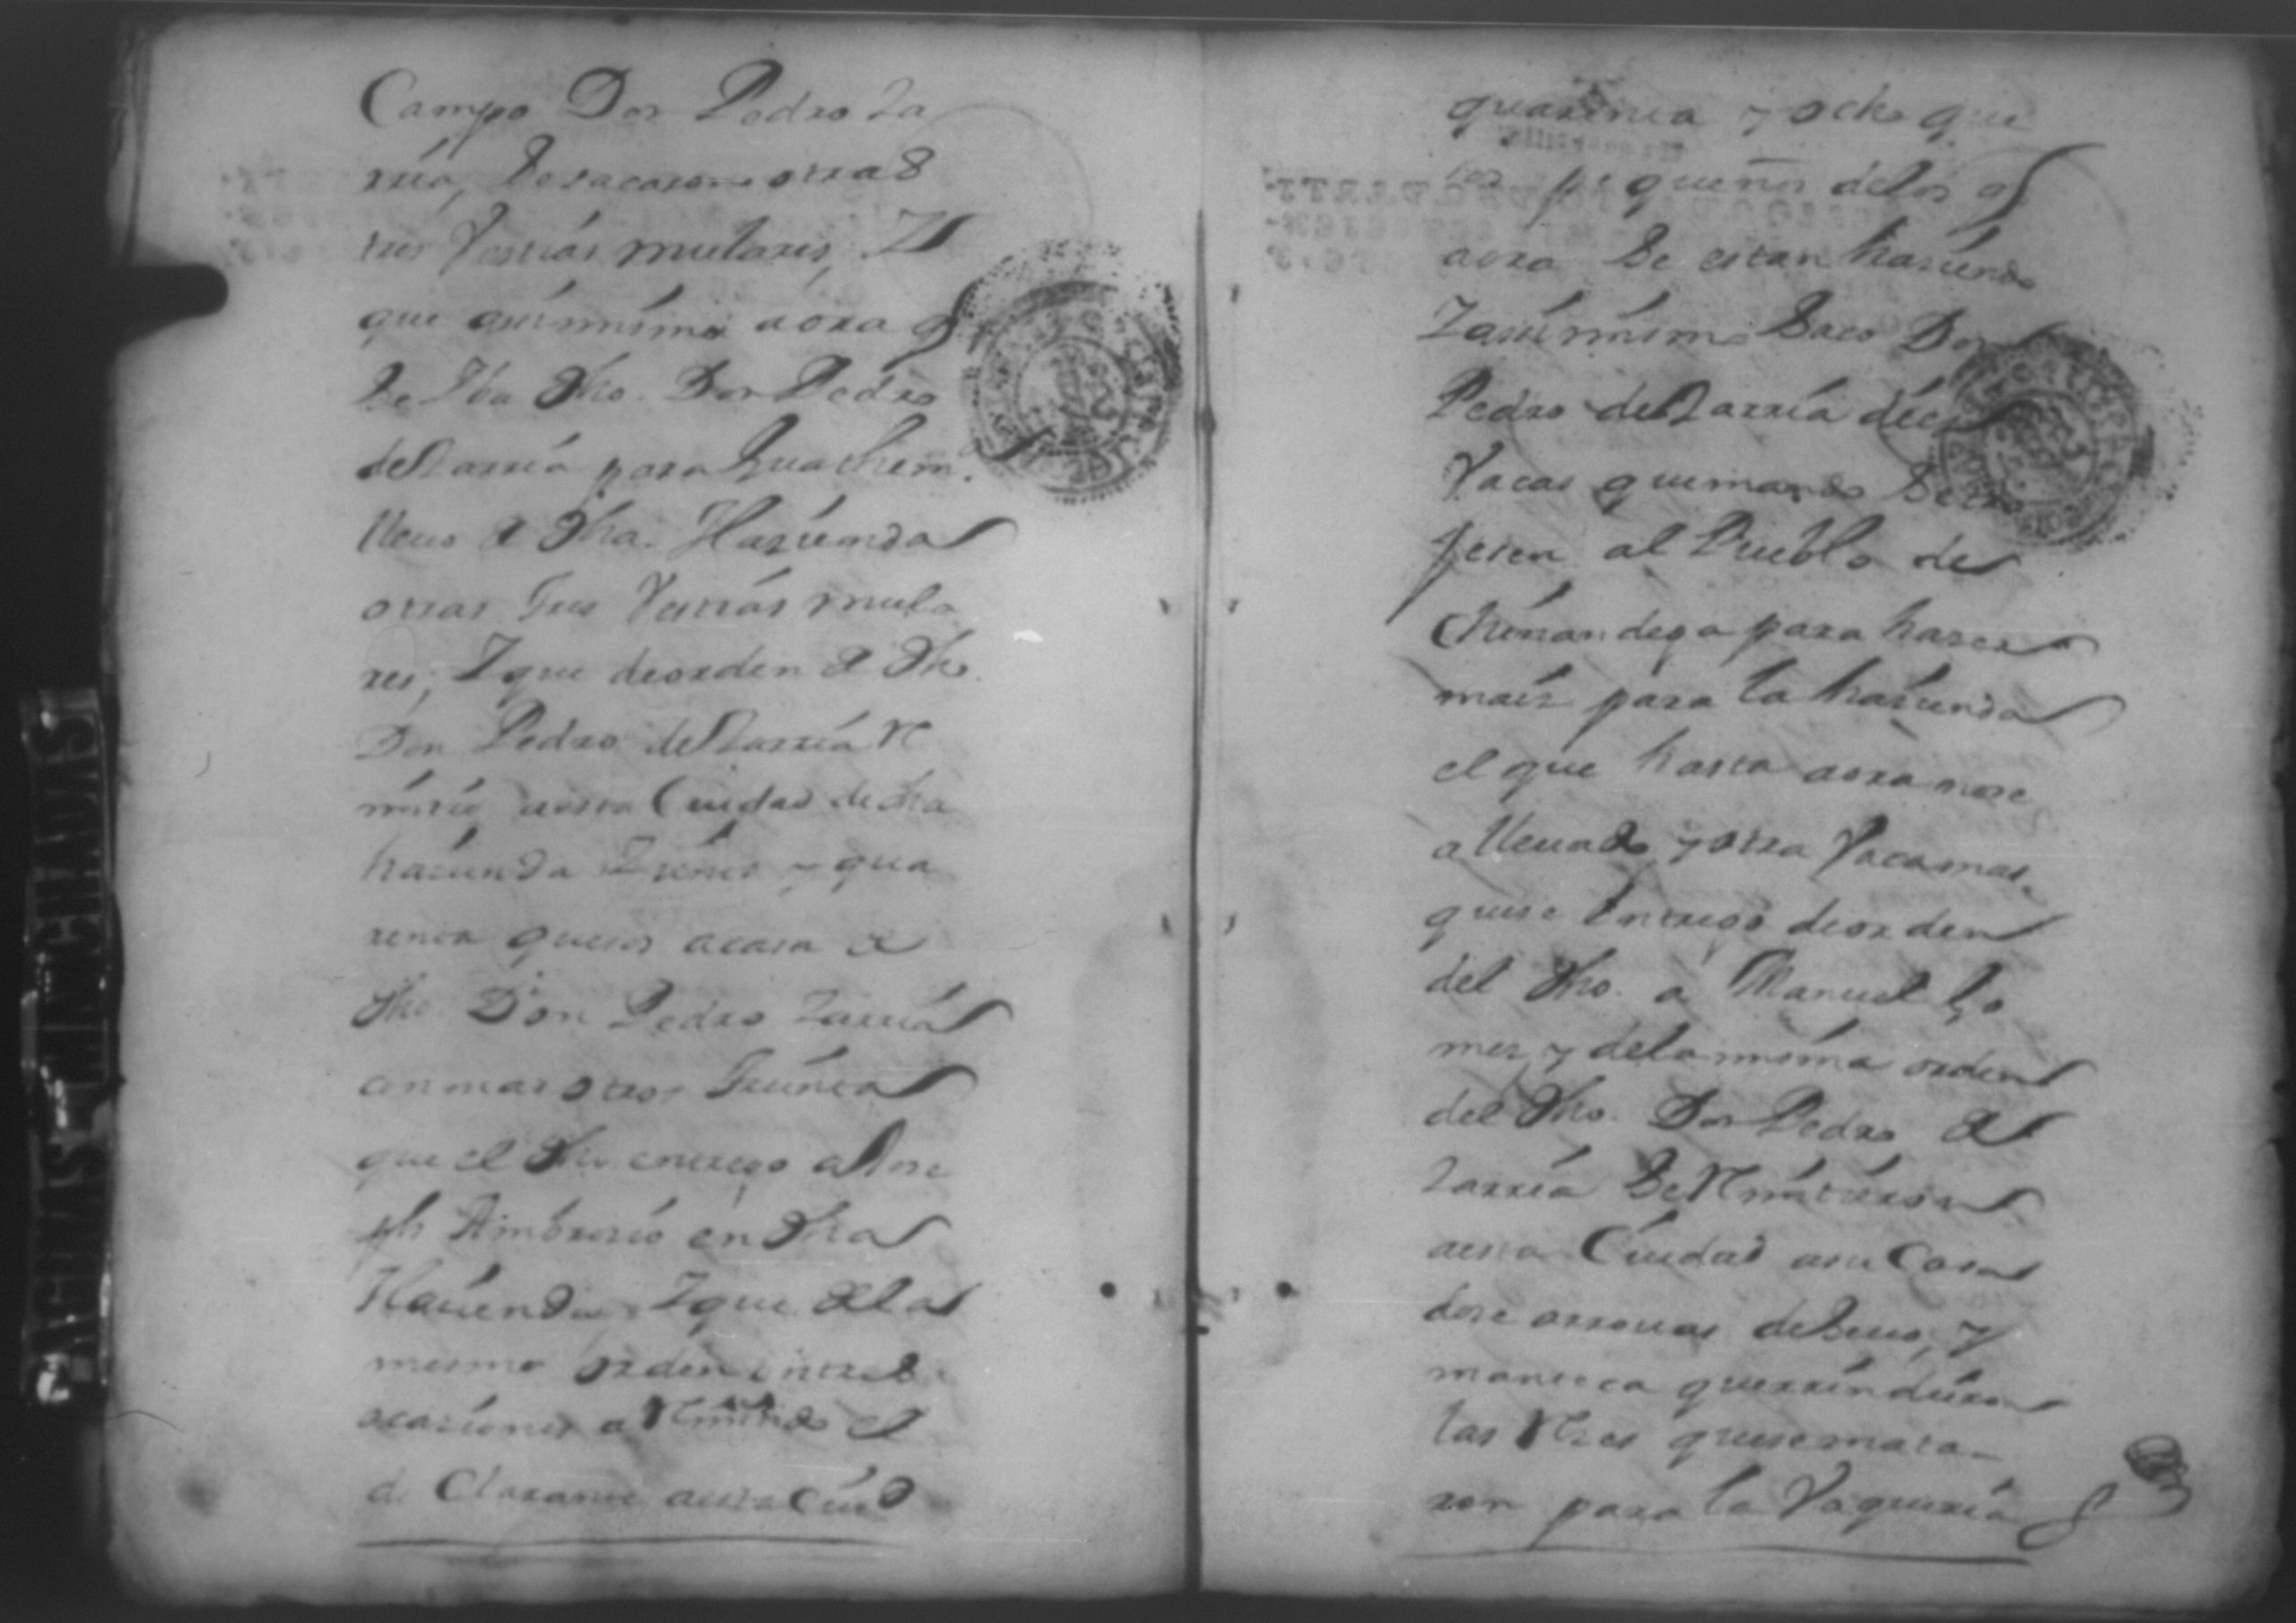 Campo Don Pedro La
rria, se sacaron otras
tres Vestias mulares, Y
que asimmismo aora q
se Yba dho. Don Pedro
de Larria para Guathem.ª
lleuo de dha. Hazienda
otras tres Vestias mula
res; Y que de orden de dho.
Don Pedro de Larria re
mitio a esta Ciudad de dha
hazienda Ziento y qua
renta quesos a casa de
dho. Don Pedro Larria
con mas otros treinta
que el dho. entrego a Jose
ph Ambrosio en dha
Hazienda Y que de la
mesma orden en tres
ocasiones a remitido el
de Clarante a esta Ciud
quarenta y ocho que
sos pequeños de los q
aora se estan haziendo
Y asimismo saco Don
Pedro de Larria diez
Vacas que mando se tra
jesen al Pueblo de
Chinandega para hazer
maiz para la hazienda
el que hasta aora no se
a lleuado, y otra Vaca mas
que se entrego de orden
del dho. a Manuel Go
mez, y de la misma orden
del dho. Don Pedro de
Larria se remitieron
a esta Ciudad a su Casa
dose arrouas de seuo, y
manteca que rrindieron
las Reses que se mata-
ron para la Vaqueria